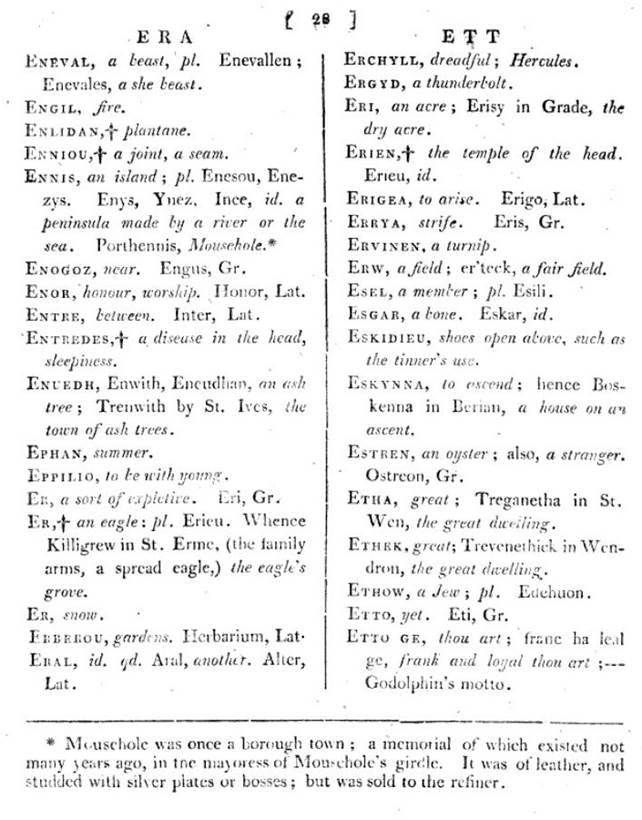 [ 28 ]
ERA
ENEVAL, a beast, pl. Enevallen;
Enevales, a she beast.
ENGIL, fire.
ENLIDAN,† plantane.
ENNIOU,† a joint, a seam.
ENNIS, an island; pl. Enesou, Ene-
zys. Enys, Ynez, Ince, id. a
peninsula made by a river or the
sea. Porthennis, Mousehole.*
ENOGOZ, near. Engus, Gr.
ENOR, honour, worship. Honor, Lat.
ENTRE, between. Inter, Lat.
ENTREDES,† a disease in the head,
sleepiness.
ENUEDH, Enwith, Encudhan, an ash
tree; Trenwith by St. Ives, the
town of ash trees.
EPHAN, summer.
EPPILIO, to be with young.
ER, a sort of expletive. Eri, Gr.
ER,† an eagle: pl. Erieu. Whence
Killigrew in St. Erme, (the family
arms, a spread eagle,) the eagle's
grove.
ER, snow.
ERBEROU, gardens. Herbarium, Lat.
ERAL, id. qd. Aral, another. Alter,
Lat.
ETT
ERCHYLL, dreadful; Hercules.
ERGYD, a thunderbolt.
ERI, an acre; Erisy in Grade, the
dry acre.
ERIEN,† the temple of the head.
Erieu, id.
ERIGEA, to arise. Erigo, Lat.
ERRYA, strife. Eris, Gr.
ERVINEN, a turnip.
ERW, a field; er'teck, a fair field.
ESEL, a member; pl. Esili.
ESGAR, a bone. Eskar, id.
ESKIDIEU, shoes open above, such as
the tinner's use.
ESKYNNA, to ascend; hence Bos-
kenna in Berian, a house on an
ascent.
ESTREN, an oyster; also, a stranger.
Ostreon, Gr.
ETHA, great; Treganetha in St.
Wen, the great dwelling.
ETHEK, great; Trevenethick in Wen-
dron, the great dwelling.
ETHOW, a Jew; pl. Edehuon.
ETTO, yet. Eti, Gr.
ETTO GE, thou art; franc ha leal
ge, frank and loyal thou art;---
Godolphin's motto.
* Mousehole was once a borough town; a memorial of which existed not
many years ago, in the mayoress of Mousehole's girdle. It was of leather, and
studded with silver plates or bosses; but was sold to the refiner.